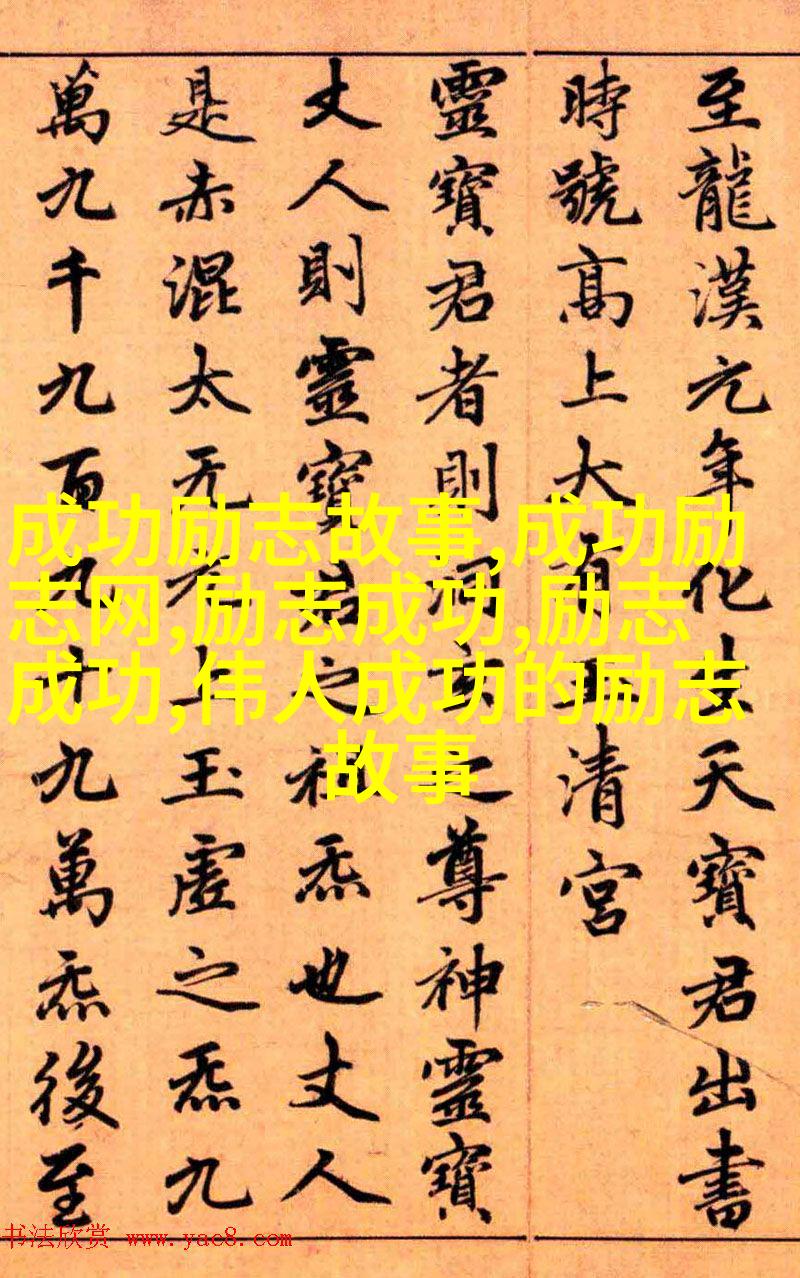 至龍漢元年化生天寶君出書
時號高上大有玉清宮
靈寶君者則洞玄之尊神靈寶
丈人則靈寶君之祖炁也丈人
是赤混太无元上玉虛之炁九
萬九千九百九十九萬炁後至
成功励志故事,成功励
志网,励志成功,励志
成功,伟人成功的励志
故事
书法欣赏 www.yac8.com